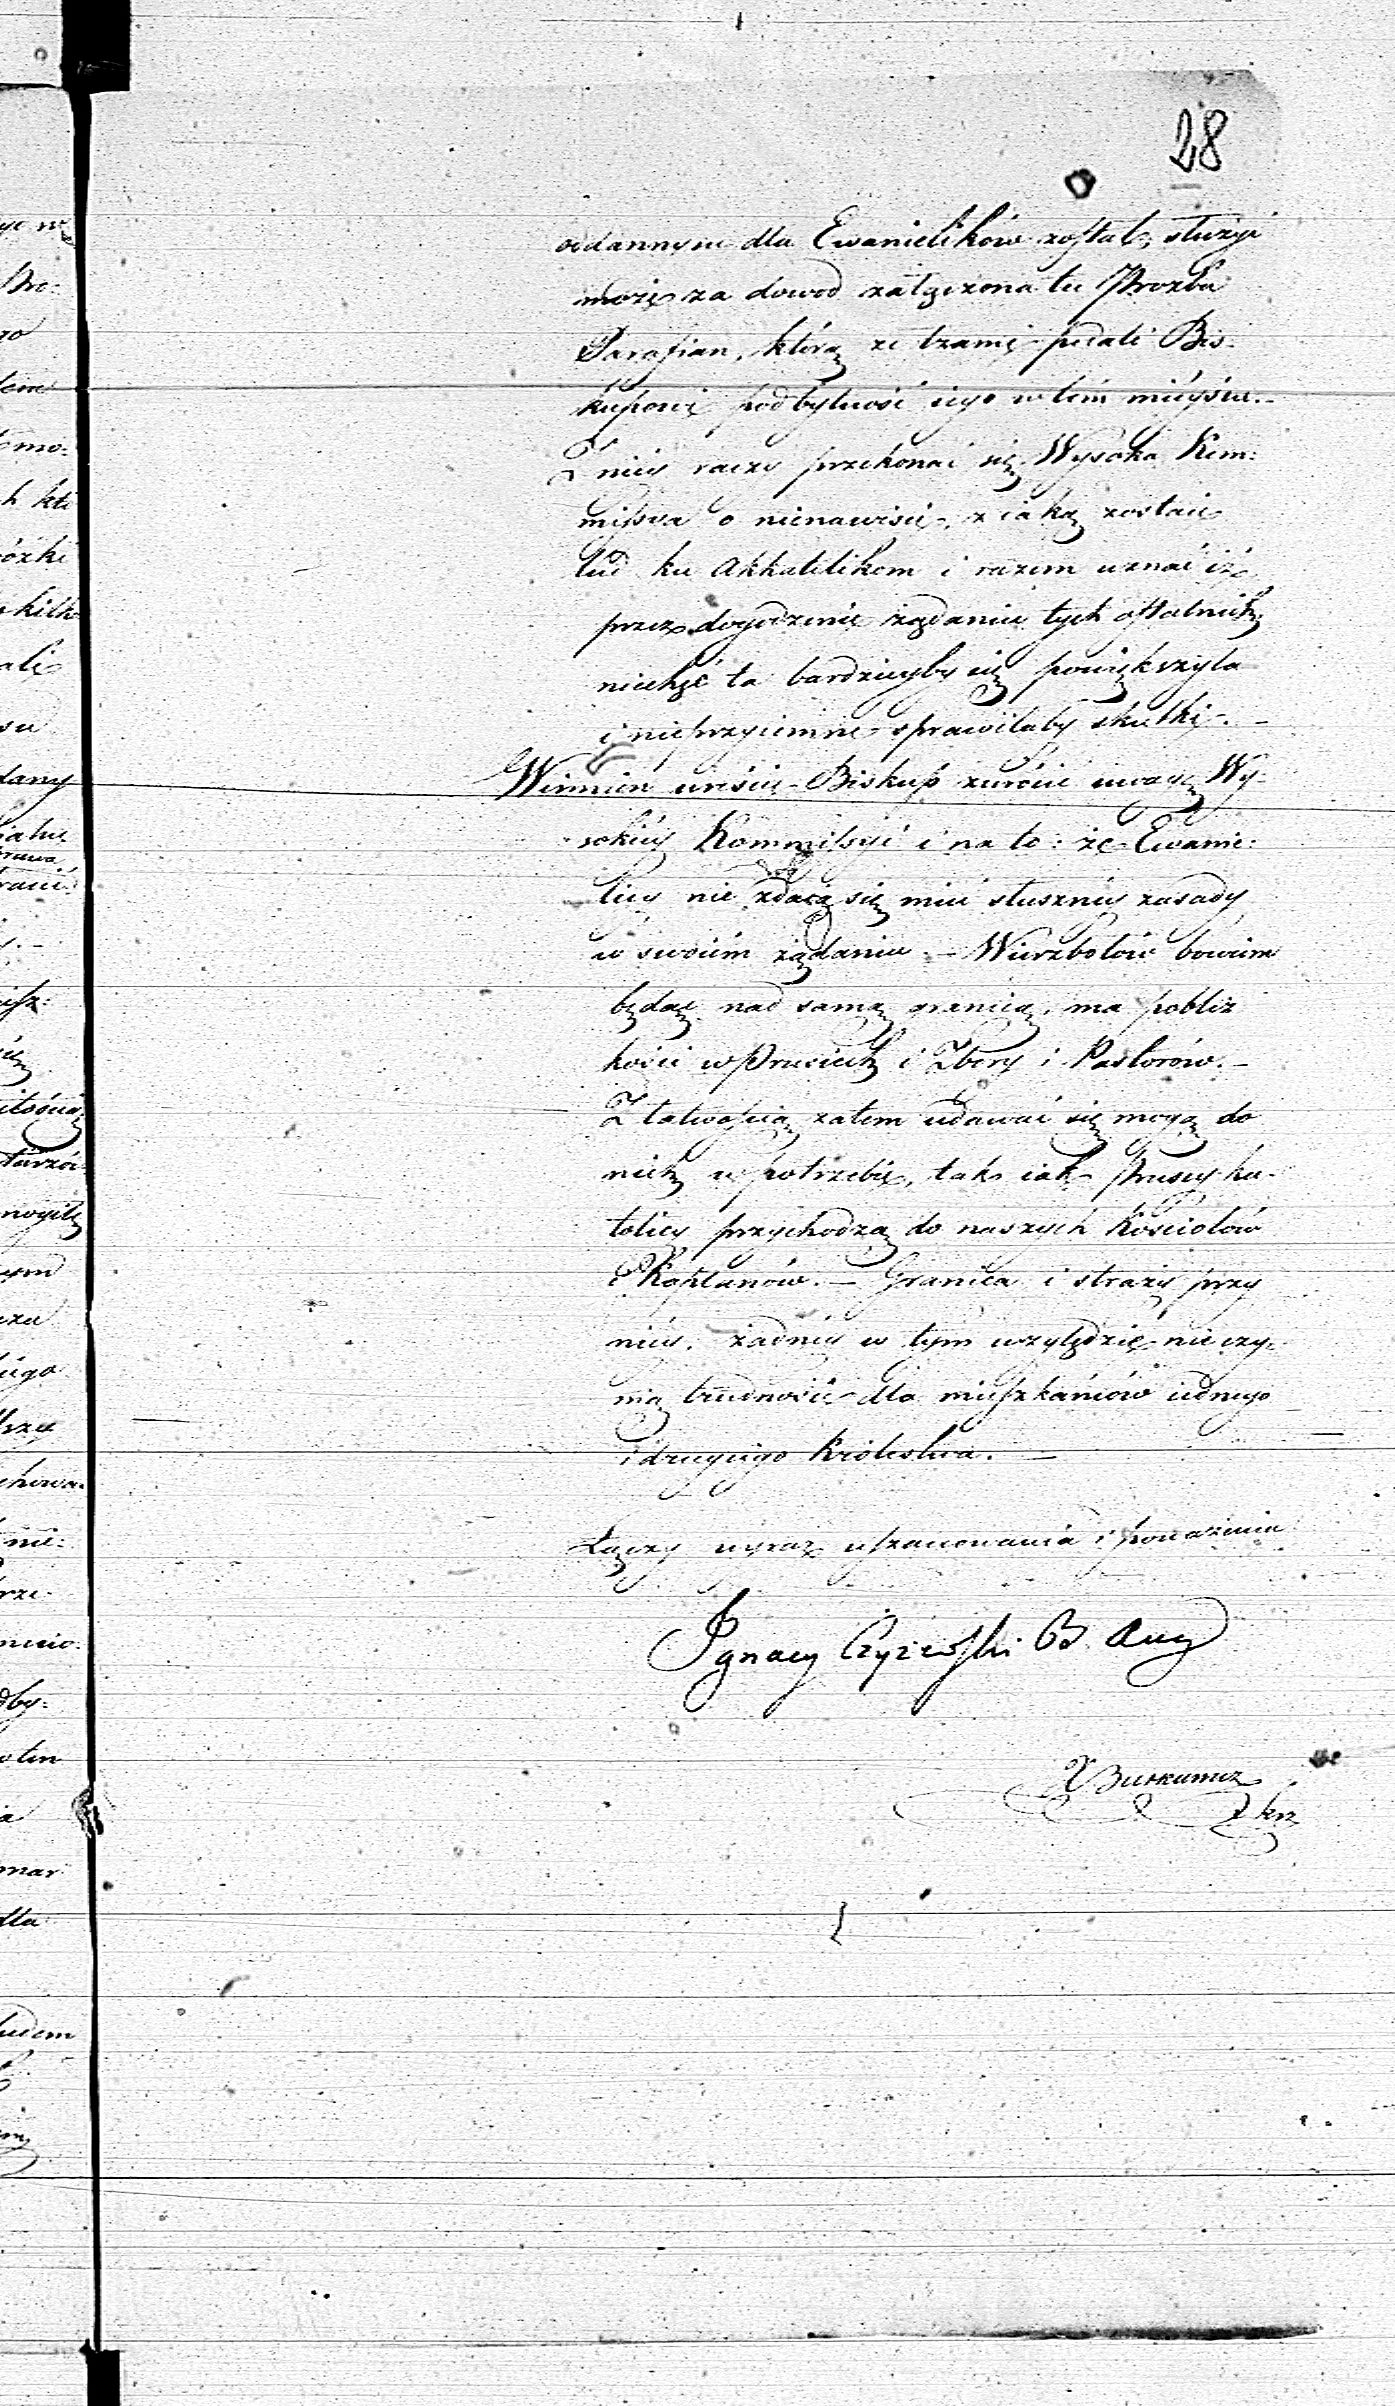 28
oddannym dla Ewanielików został, służyć
może za dowod załączona tu Prozba
Parafian, którą ze łzami podali Bis-
kupowi pod bytność iego w tém mieyscu. -
Z niey raczy przekonać się Wysoka Kom:
missya o nienawisci, z iaką zostaie
lud ku Akkatolikom i razem uznać iż
przez dogodzenie żądaniu tych ostatnich,
niechęć ta bardzieyby się powiększyła
i nieprzyiemne sprawiłaby skutki. -
Winien wreście Biskup zwrócić uwagę Wy-
sokiey Kommissyi i na to: że Ewanie:
licy nie zdaią się mieć słuszney zasady
w swoiém żądaniu. - Wierzbołów bowiem
będąc nad samą granicą, ma pobliz
kości w Prusiech i Zbory i Pastorów. -
Z łatwością zatem udawać się mogą do
nich w potrzebie, tak iak Pruscy ka-
tolicy przychodzą do naszych Kościołów
i Kapłanów. - Granica i straży przy
niey, żadney w tym względzie nie czy-
nią trudności dla mieszkańców iednego
i drugiego Królestwa. -
Łączy wyraz uszanowania i poważenia
Ignacy Czyżewski B. Aug